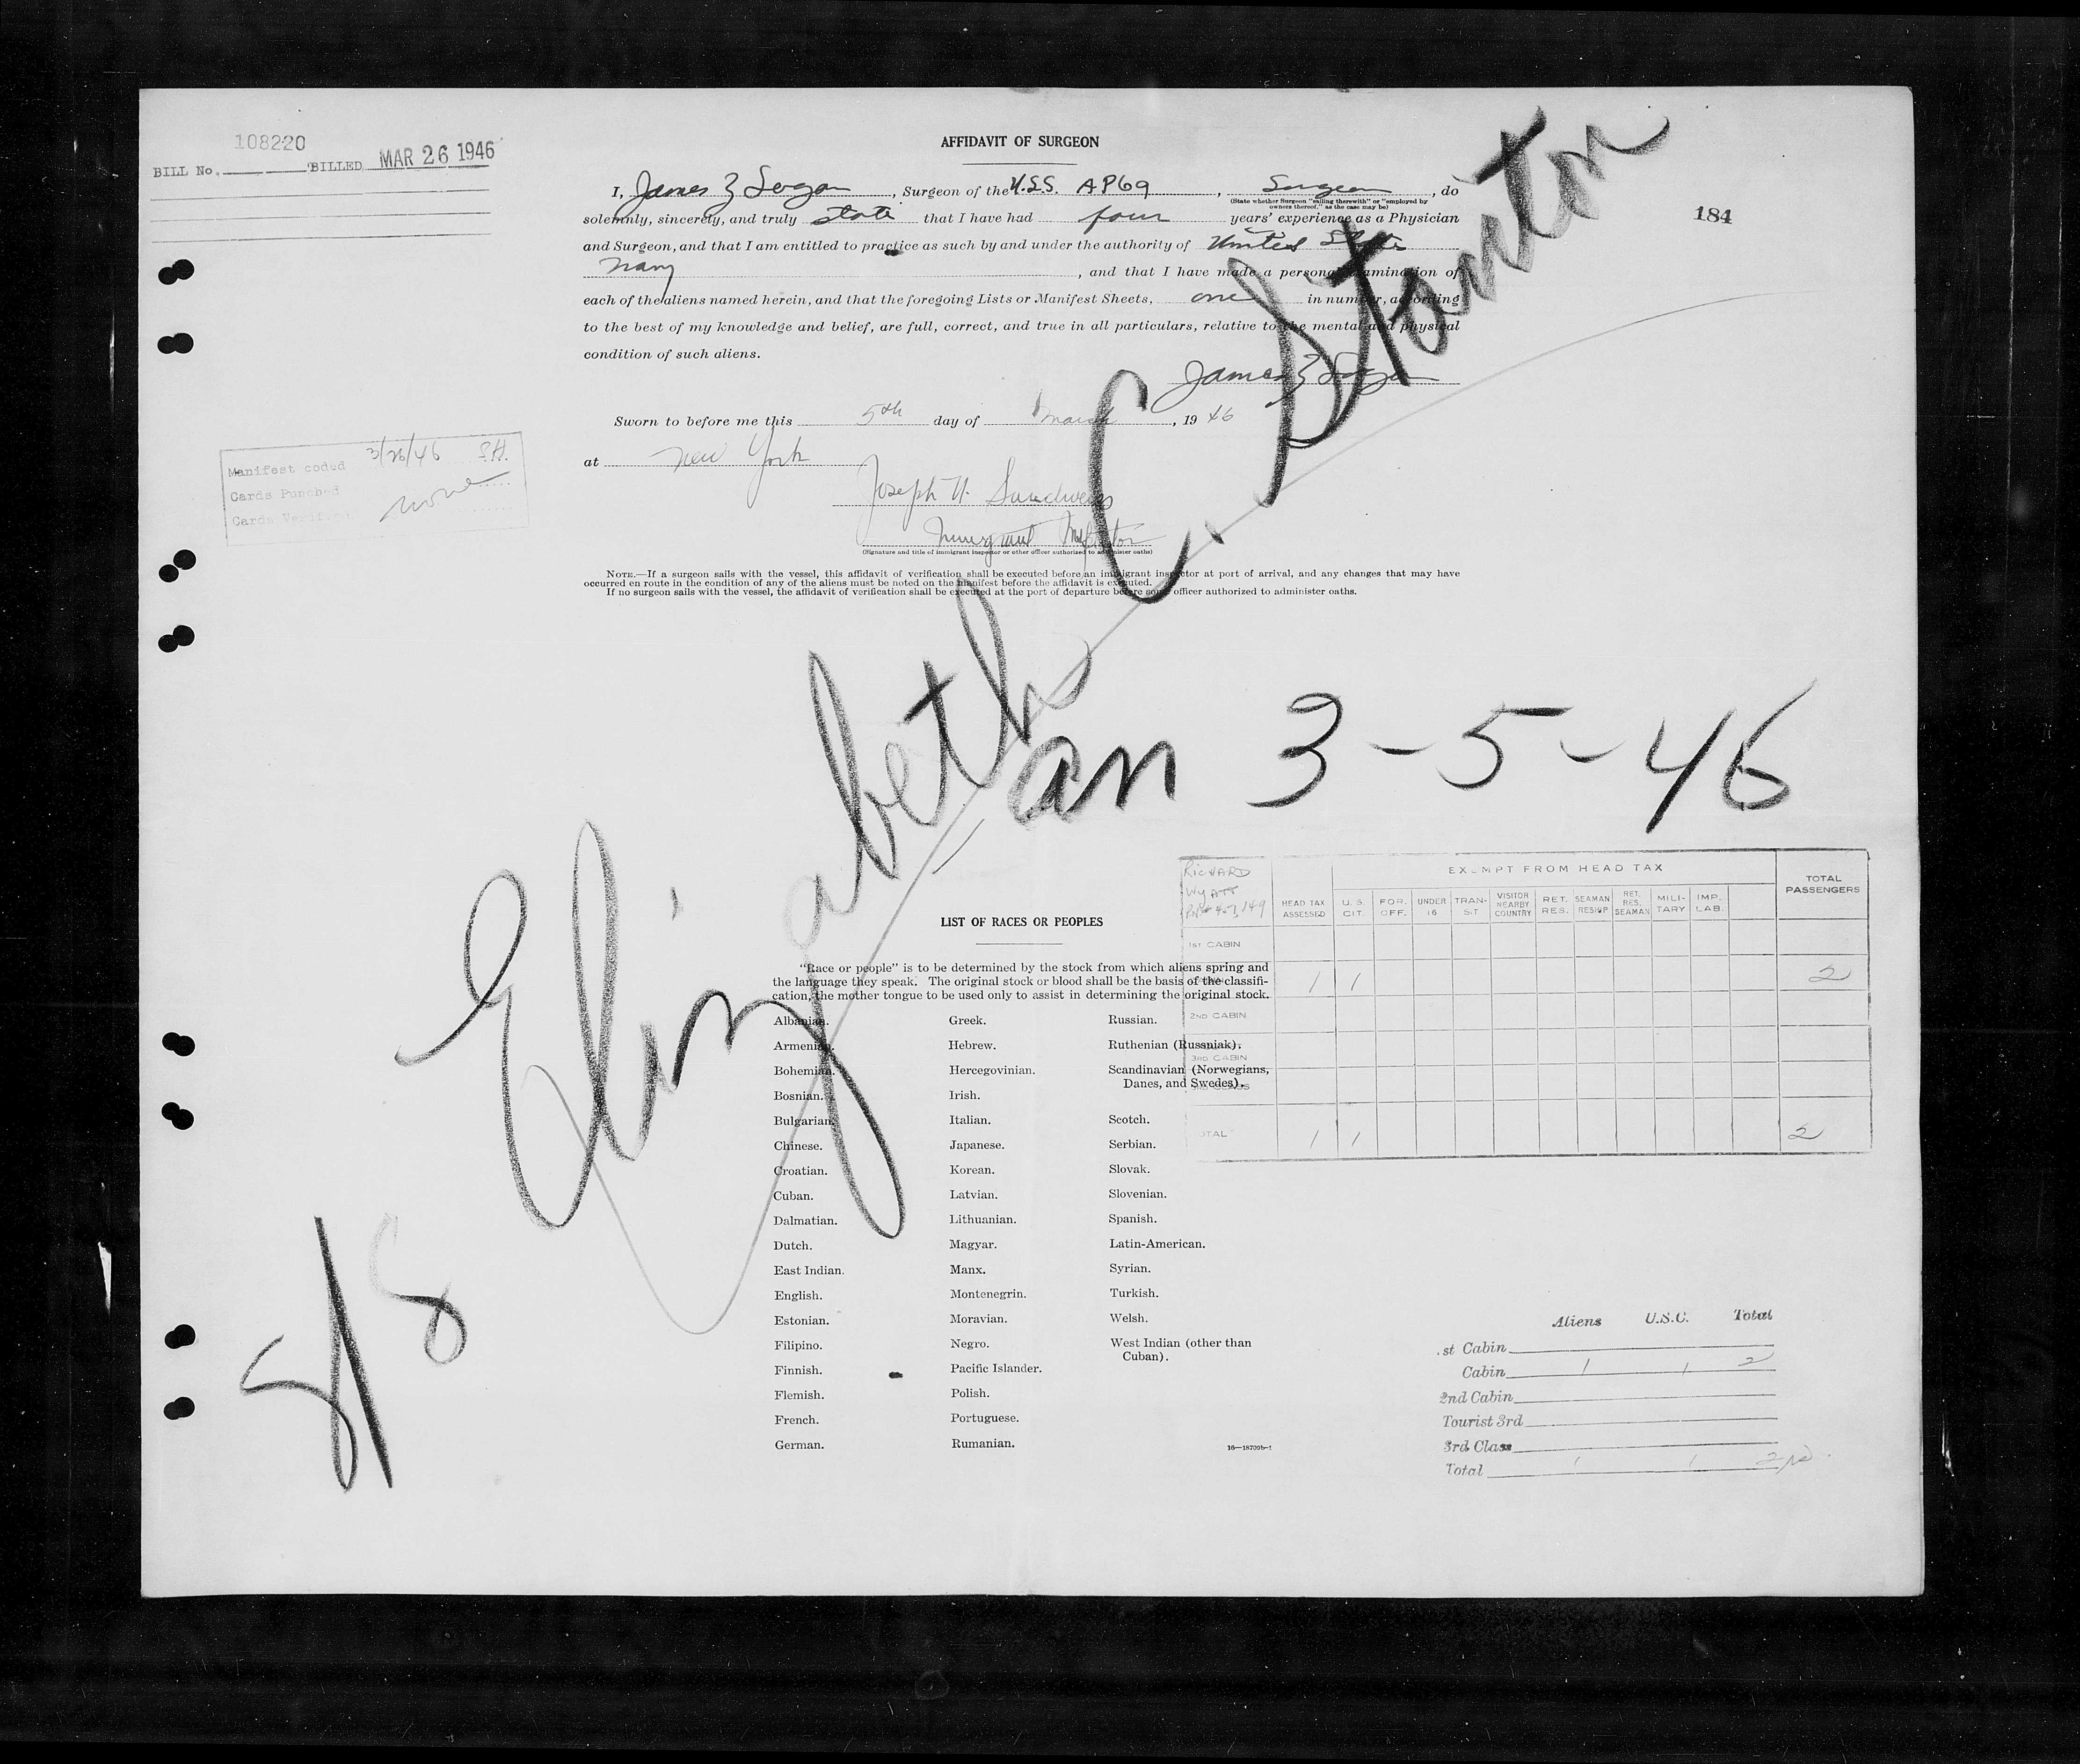 108220
BILL No. BILLED MAR 26 1946
AFFIDAVIT OF SURGEON
184
I, James Z, Surgeon of the U.S.S. AP69, Surgeon, do
(State whether Surgeon "sailing therewith" or "employed by
owners thereof," as the case may be)
solemnly, sincerely, and truly state that I have had four years' experience as a Physician
and Surgeon, and that I am entitled to practice as such by and under the authority of United States
Navy, and that I have made a personal examination of
each of the aliens named herein, and that the foregoing Lists or Manifest Sheets, one in number, according
to the best of my knowledge and belief, are full, correct, and true in all particulars, relative to the mental and physical
condition of such aliens.
James Z
Sworn to before me this 5th day of March, 19 46
at New York
Joseph
Immigrant Inspector
(Signature and title of immigrant inspector or other officer authorized to administer oaths)
Manifest coded 3/26/46 S.H.
Cards Punched none
Cards Verified
NOTE.—If a surgeon sails with the vessel, this affidavit of verification shall be executed before an immigrant inspector at port of arrival, and any changes that may have
occurred en route in the condition of any of the aliens must be noted on the manifest before the affidavit is executed.
If no surgeon sails with the vessel, the affidavit of verification shall be executed at the port of departure before some officer authorized to administer oaths.
S/S Elizabeth C. Stanton
an 3-5-46
RICHARD
WYATT
EXEMPT FROM HEAD TAX
HEAD TAX ASSESSED U.S. CIT. FOR. OFF. UNDER 16 TRANSIT VISITOR NEARBY COUNTRY RET. RES. SEAMAN RESHIP RET. RES. SEAMAN MILITARY IMP. LAB. TOTAL PASSENGERS
1ST CABIN
1 1 2
2ND CABIN
3RD CABIN
3RD CLASS
TOTAL 1 1 2
LIST OF RACES OR PEOPLES
"Race or people" is to be determined by the stock from which aliens spring and
the language they speak. The original stock or blood shall be the basis of the classifi-
cation, the mother tongue to be used only to assist in determining the original stock.
Albanian.
Armenian.
Bohemian.
Bosnian.
Bulgarian.
Chinese.
Croatian.
Cuban.
Dalmatian.
Dutch.
East Indian.
English.
Estonian.
Filipino.
Finnish.
Flemish.
French.
German.
Greek.
Hebrew.
Hercegovinian.
Irish.
Italian.
Japanese.
Korean.
Latvian.
Lithuanian.
Magyar.
Manx.
Montenegrin.
Moravian.
Negro.
Pacific Islander.
Polish.
Portuguese.
Rumanian.
Russian.
Ruthenian (Russniak).
Scandinavian (Norwegians,
Danes, and Swedes).
Scotch.
Serbian.
Slovak.
Slovenian.
Spanish.
Latin-American.
Syrian.
Turkish.
Welsh.
West Indian (other than
Cuban).
16—18709b-1
Aliens U.S.C. Total
st Cabin
Cabin 1 1 2
2nd Cabin
Tourist 3rd
3rd Class
Total 1 1 2